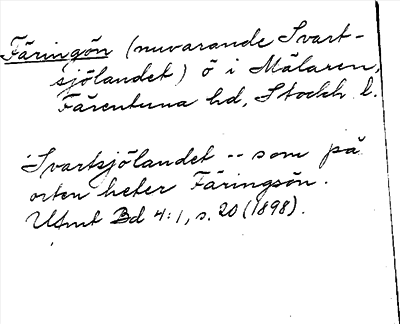 Färingön (nuvarande Svart-
sjölandet) ö i Mälaren,
Färentuna hd, Stockh. l.
Svartsjölandet -- som på
orten heter Färingsön.
Utmt Bd 4:1, s. 20 (1898).